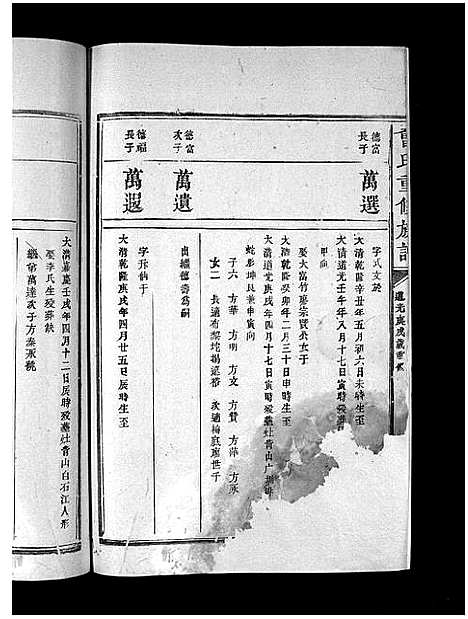 曾氏重修族譜
道光庚戌歲重修
德富
長子
萬選
字式文於
大清乾隆辛丑年五月初六日未時生至
大清道光壬午年八月十七日寅時殁
甲向
娶大富竹
宗賢公女于
大清乾隆癸卯年二月三十日申時生至
大清道光庚戌年四月十七日寅時
青山广
蛇形坤艮兼申寅向
子六 方華 方明 方文 方贊 方萍 方承
女二 長適布梨坨
次適梅
德富
次子
萬遺
出繼德壽爲嗣
德福
長子
萬遐
字斥仙于
大清乾隆庚戌年四月廿五日辰時生至
大清嘉慶壬戌年四月十二日辰時殁墓灶背山白石江人形
娶李氏生殁葬缺
繼弟萬達次子方秦承祧